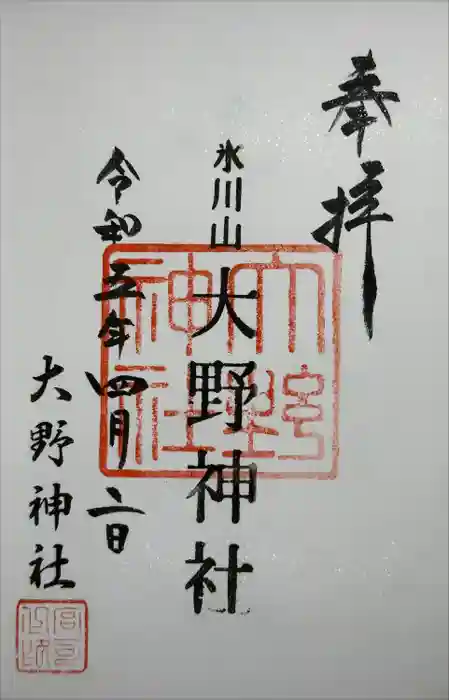 奉拝
氷川山
大野神社
大野神社
令和五年四月二日
大野神社